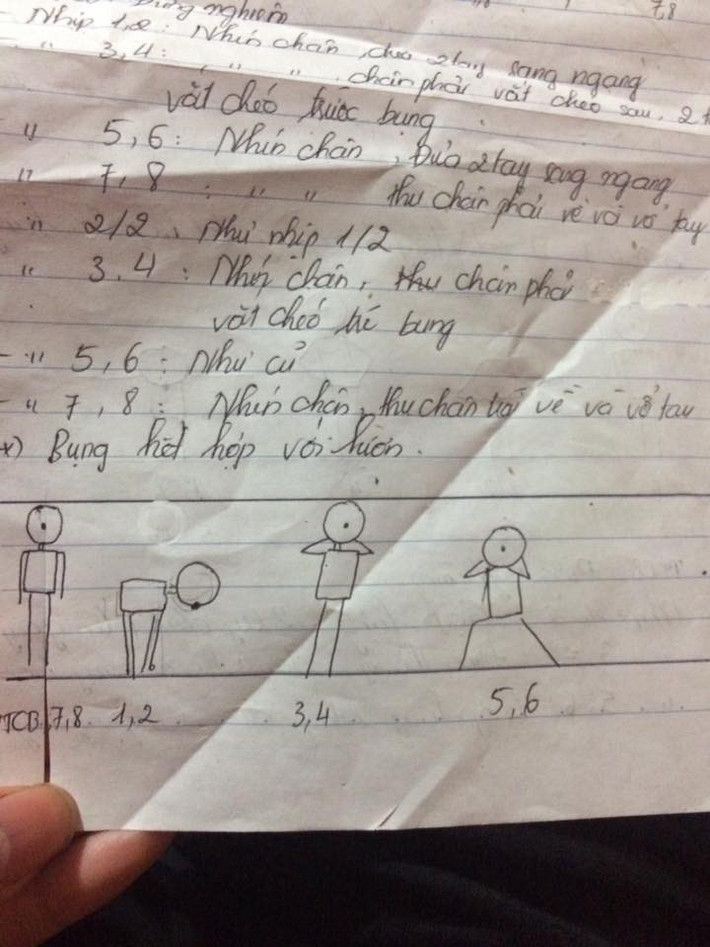 Đứng nghiêm
7,8
- Nhịp 1,2 : Nhún chân, đưa 2 tay sang ngang
" 3,4 : " " chân phải vắt chéo sau, 2 t
vắt chéo trước bụng
" 5,6 : Nhún chân, Đưa 2 tay sang ngang
" 7,8 : " " thu chân phải về và vỗ tay
" 2/2 : Như nhịp 1/2
" 3,4 : Nhún chân, thu chân phả
vắt chéo trc bụng
- " 5,6 : Như cũ
- " 7,8 : Nhún chân, thu chân trái về và vỗ tay
x) Bụng kết hợp với lườn.
TCB 7,8 1,2 3,4 5,6